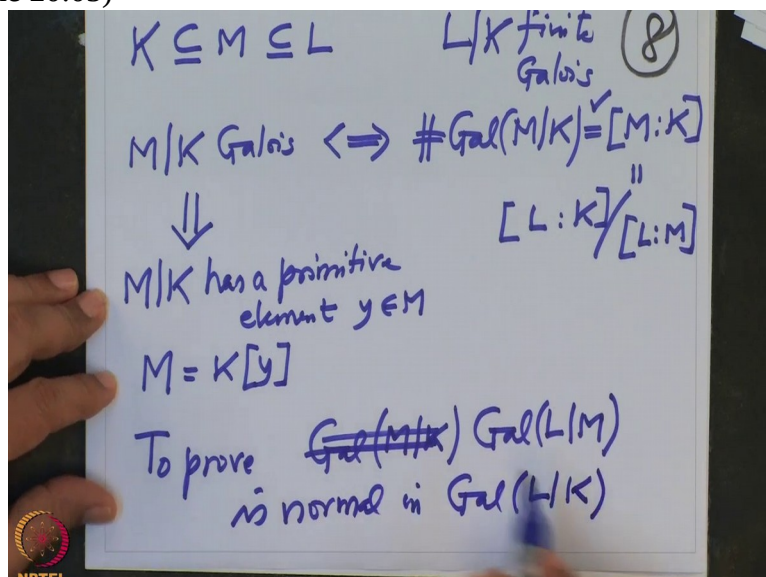 K ⊆ M ⊆ L L|K finite 8
Galois
M|K Galois <=> #Gal(M|K) = [M:K]
⇓ =
[L:K]/[L:M]
M|K has a primitive
element y ∈ M
M = K[y]
To prove Gal(M|K) Gal(L|M)
is normal in Gal(L|K)